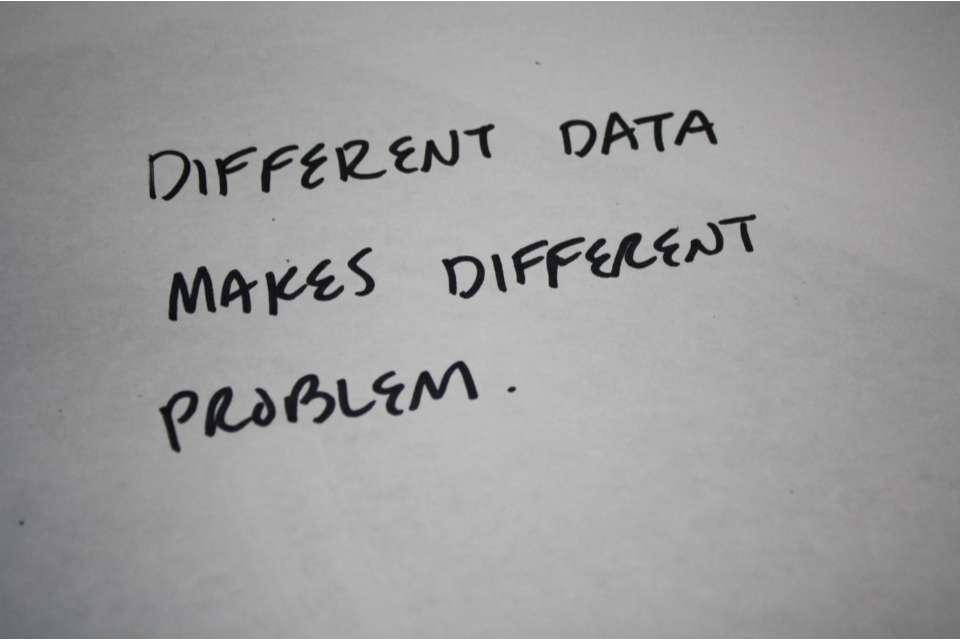 DIFFERENT DATA
MAKES DIFFERENT
PROBLEM.